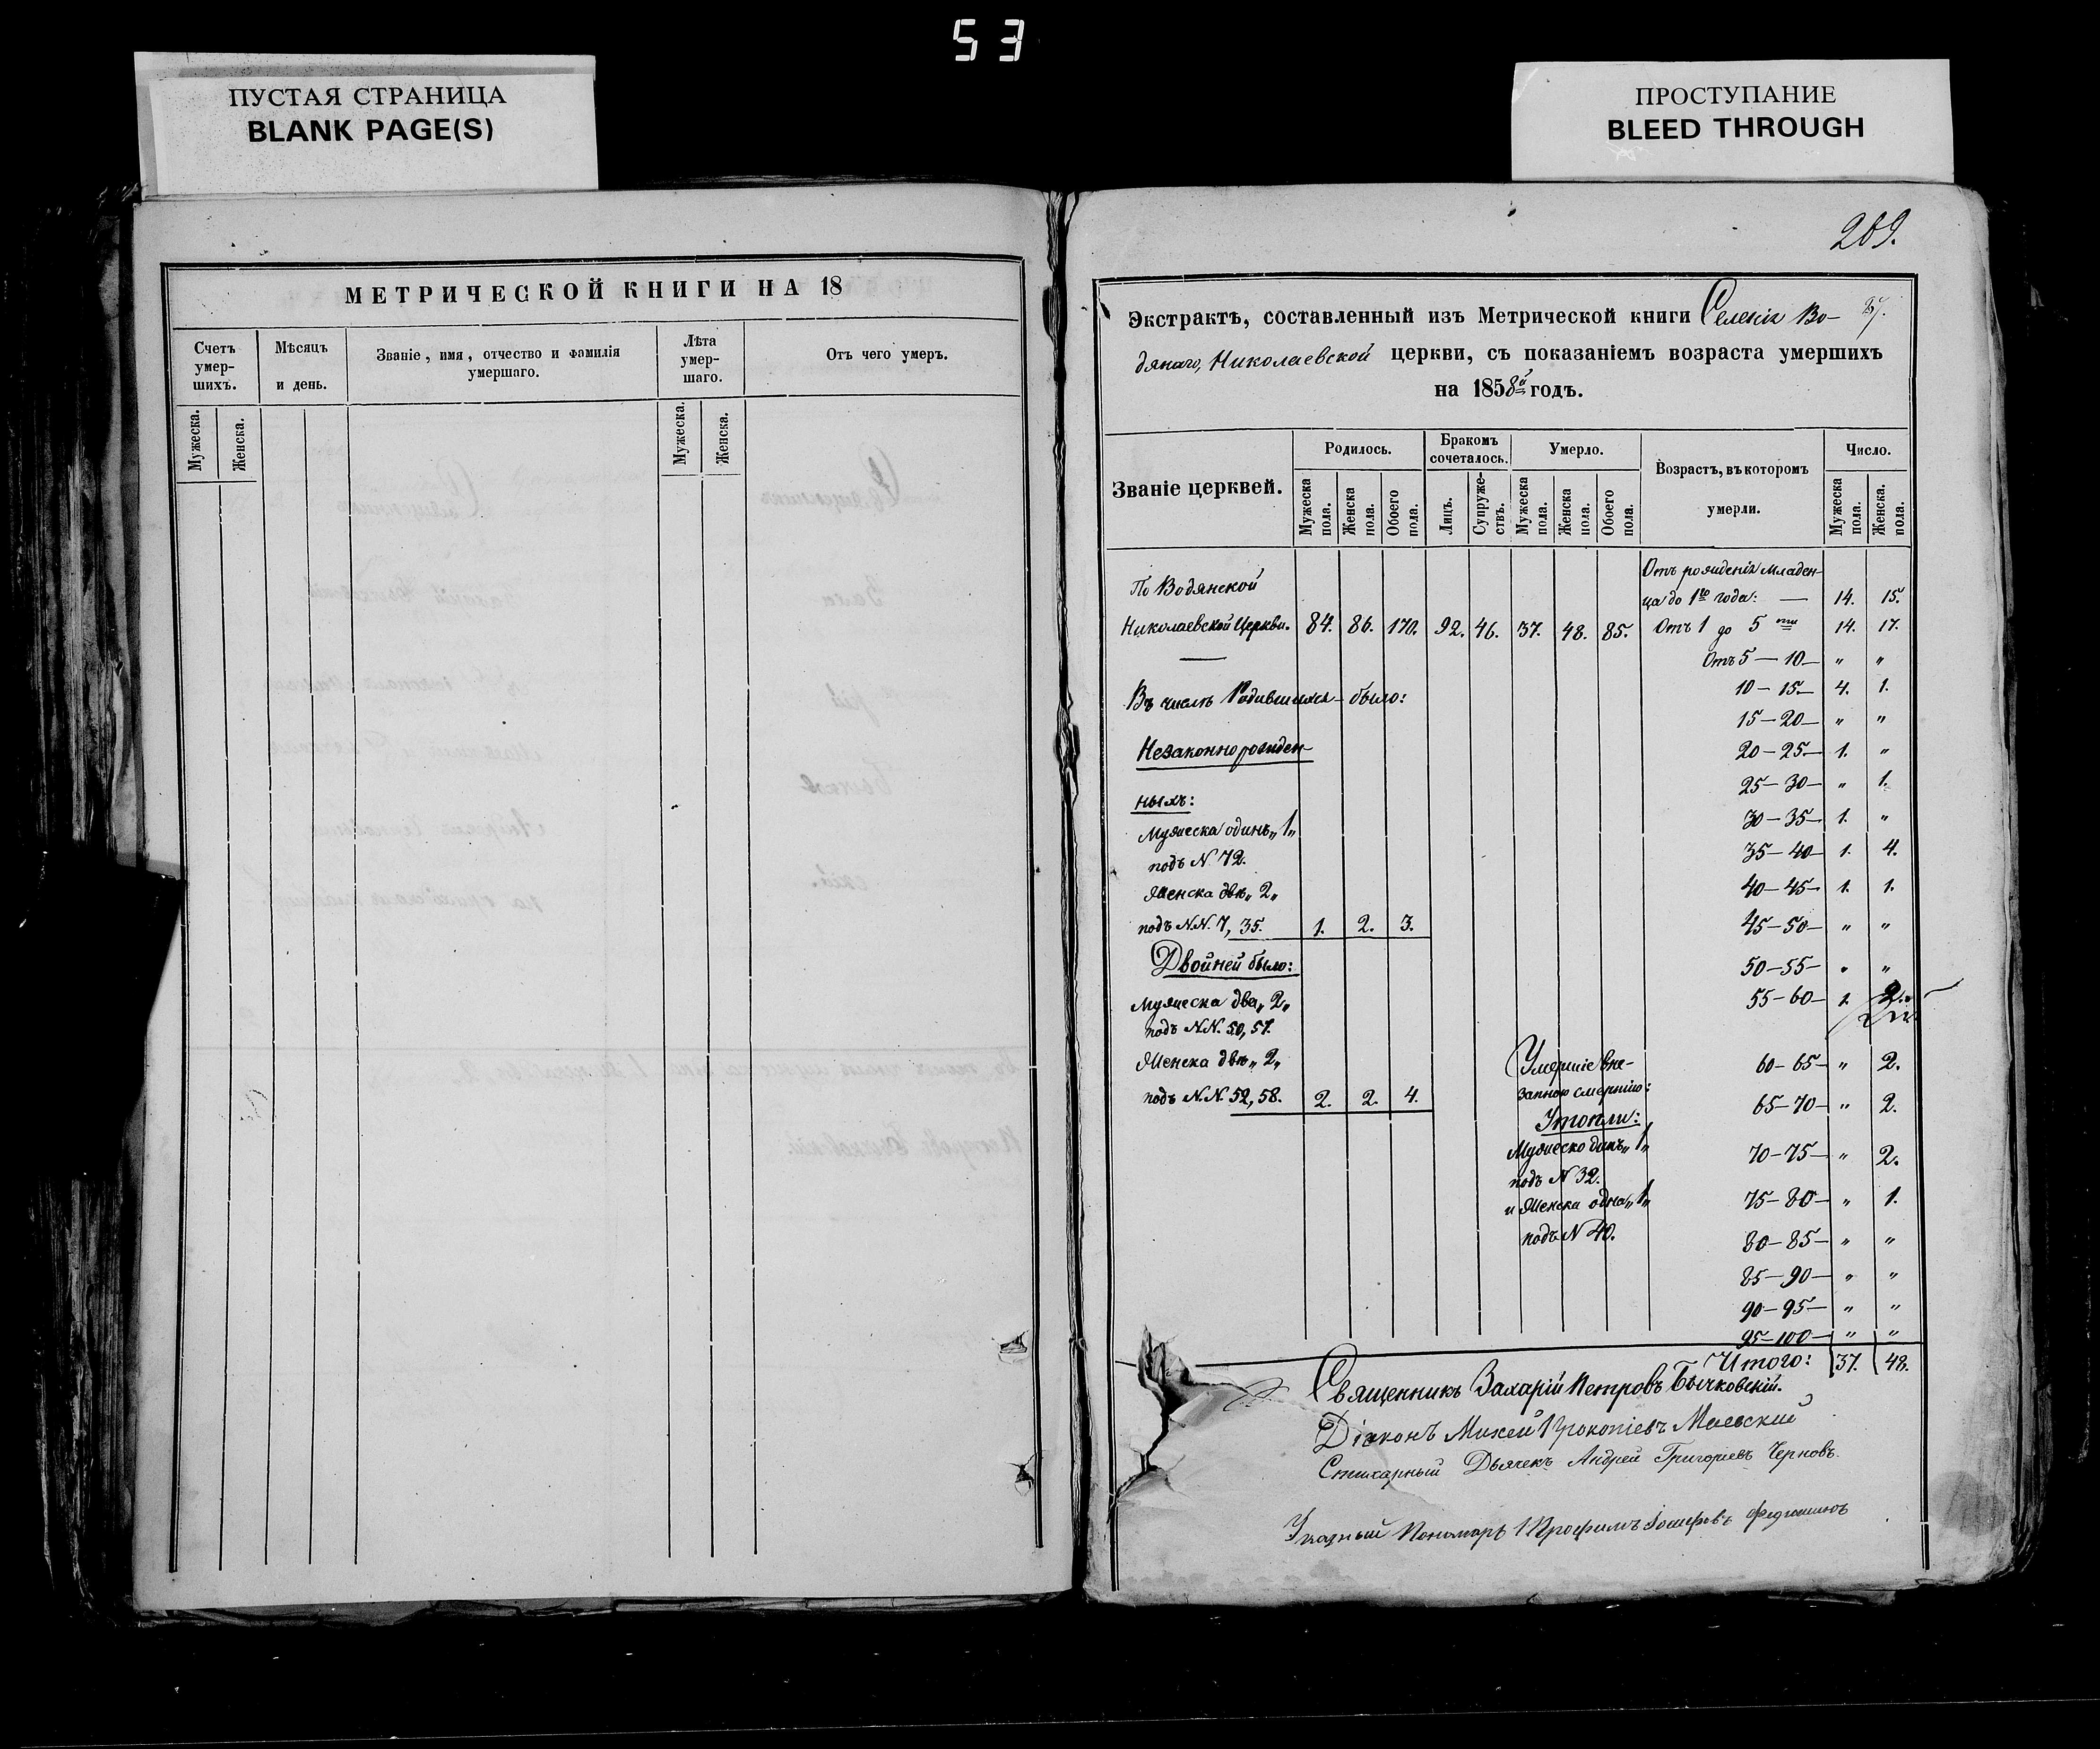 53
ПУСТАЯ СТРАНИЦА
BLANK PAGE(S)
ПРОСТУПАНИЕ
BLEED THROUGH
МЕТРИЧЕСКОЙ КНИГИ НА 18
Счетъ умер-шихъ.
Мѣсяцъ и день.
Званіе, имя, отчество и фамилія умершаго.
Лѣта умер-шаго.
Отъ чего умеръ.
Мужеска.
Женска.
Мужеска.
Женска.
209.
Экстрактъ, составленный изъ Метрической книги Селенія Во-
дянаго, Николаевской церкви, съ показаніемъ возраста умершихъ
на 1858й годъ.
Званіе церквей.
Родилось.
Бракомъ сочеталось.
Умерло.
Возрастъ, въ которомъ умерли.
Число.
Мужеска пола.
Женска пола.
Обоего пола.
Лицъ.
Супруже-ствъ.
Мужеска пола.
Женска пола.
Обоего пола.
Мужеска пола.
Женска. пола.
По Водянской
Отъ рожденія младен-
ца до 1го года: — 14. 15.
Николаевской Церкви. 84. 86. 170. 92. 46. 37. 48. 85. Отъ 1 до 5ти 14. 17.
Отъ 5 — 10 — " "
Въ числѣ Родившихся было:
10 — 15 — 4. 1.
15 — 20 — " "
Незаконнорожден-
20 — 25 — 1. "
ныхъ:
25 — 30 — " 1.
Мужеска одинъ „1„
30 — 35 — 1. "
подъ N. 72.
35 — 40 — 1. 4.
Женска двѣ „2„
40 — 45 — 1. 1.
подъ N.N. 7, 35. 1. 2. 3.
45 — 50 — " "
Двойней было:
50 — 55 — " "
Мужеска два „2„
55 — 60 — 1. 2.
подъ N.N. 50, 57.
Женска двѣ „2„
Умершіе вне-
60 — 65 — " 2.
подъ N.N. 52, 58. 2. 2. 4.
запною смертію:
65 — 70 — " 2.
Утопли:
Мужеск одинъ „1„
70 — 75 — " 2.
подъ N 32.
и Женска одна „1„
75 — 80 — " 1.
подъ N 40.
80 — 85 — " "
85 — 90 — " "
90 — 95 — " "
95 — 100 — " "
Итого: 37. 48.
Священникъ Захарій Петровъ Бычковскій.
Діаконъ Михей Прокопіевъ Маевский
Стихарный Дьячекъ Андрей Григорьевъ Черновъ.
Указный Пономарь